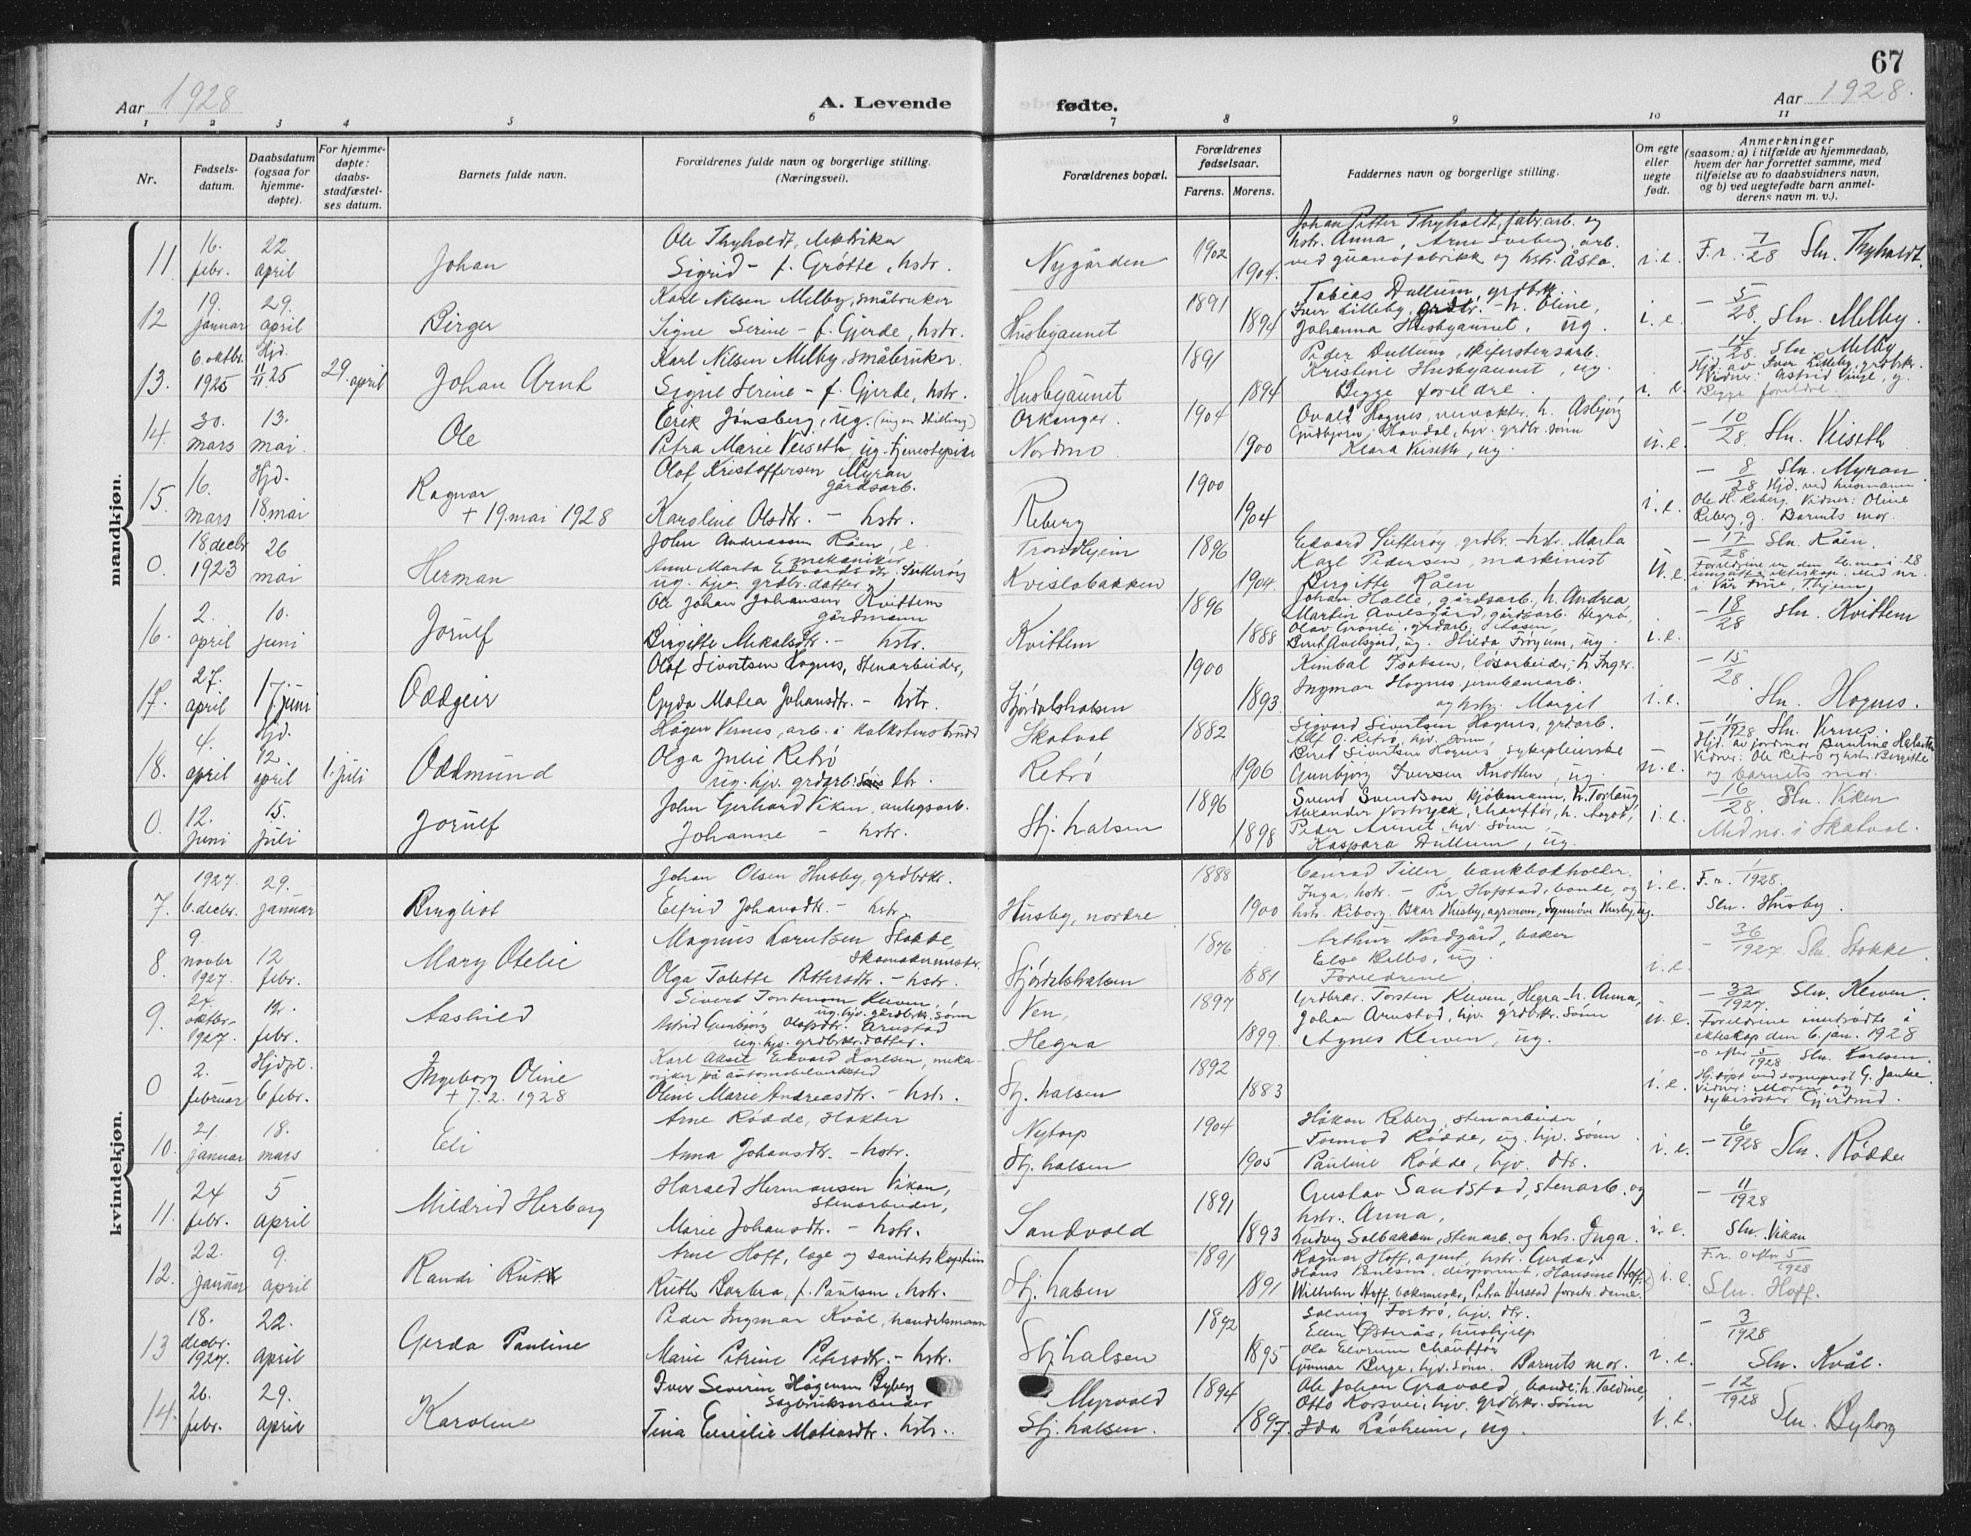 67
Aar 1928
A. Levende
fødte.
Aar 1928.
1 2 3 4 5 6 7 8 9 10 11
Nr.
Fødsels-
datum.
Daabsdatum
(ogsaa for
hjemme-
døpte).
For hjemme-
døpte:
daabs-
stadfæstel-
ses datum.
Barnets fulde navn.
Forældrenes fulde navn og borgerlige stilling.
(Næringsvei).
Forældrenes bopæl.
Forældrenes
fødselsaar.
Farens. Morens.
Faddernes navn og borgerlige stilling.
Om egte
eller
uegte
født.
Anmerkninger
(saasom: a) i tilfælde av hjemmedaab,
hvem der har forrettet samme, med
tilføielse av to daabsvidners navn,
og b) ved uegtefødte barn anmel-
derens navn m. v.).
mandkjøn.
11 16. febr. 22 april Johan
Ole Thyholdt,
Sigrid - f. Grøtte, hstr.
Nygården 1902 1904.
Johan Petter Thyholdt, fabr.arb. og
hstr. Anna, Arne Sveberg, arb.
ved guanofabrikk og hstr. Åsta.
i.e. F.r. 7/28 Sln. Thyholdt.
12 19. januar 29. april Birger
Karl Nilsen Melby, småbruker
Signe Serine - f. Gjerde, hstr.
Husbyaunet 1891 1894
Tobias Dullum, grdbr.
Iver Lilleby, grdbr. - h. Oline,
Johanna Husbyaunet, ug.
i.e. - 5/28. Sln. Melby.
13. 6 oktbr. 1925 Hjd. 11/11 25 29. april Johan Arnt
Karl Nilsen Melby, småbruker.
Signe Serine - f. Gjerde, hstr.
Husbyaunet 1891 1894
Peder Dullum,
Kristine Husbyaunet, ug.
Begge foreldre.
i. e. - 14/28. Sln. Melby
Hjd. av Iver Lilleby, grdbrkr.
Vidner: Astrid Vinge, g.
Begge foreldre.
14. 30. mars 13. mai Ole
Erik Jønsberg, ug. (ingen stilling)
Petra Marie Veiseth, ug. tjenestepike
Orkanger. Nordmo. 1904 1900
Klara Veiseth, ug.
u.e. - 10/28 Sln. Veiseth.
15. 16. mars Hjd. 18 mai Ragnar
+ 19. mai 1928
Olaf Kristoffersen Myran
gårdsarb.
Karoline Olsdtr. - hstr.
Reberg 1900 1904
i.e. - 8/28 Sln. Myran
Hjd. ved husmann
Ole H. Reberg. Vidner: Oline
Reberg, g. Barnets mor.
0. 18 decbr 1923 26 mai Herman
John Andreassen Råen, e.
mekaniker
Anne Marta Edvardsdtr. Sutterøy
ug. hjv. grdbr. datter
Trondhjem Kvislabakken 1896 1904
Edvard Sutterøy grdbr. - hstr. Marta
Karl Pedersen, maskinist
Birgitte Råen
u.e. - 17/28 Sln. Råen.
Foreldrene er den 26. mai 28
16. 2. april 10. juni Jorulf
Ole Johan Johansen Kvittem
gårdmann
Birgitte Mikalsdtr. - hstr.
Kvittem 1896 1888
Johan Halle, gårdsarb. h. Andrea
Martin Avelsgård, gårdsarb. Hegra,
Berit Avelsgård, ug. Hilda Frøyum, ug.
i.e. - 18/28 Sln. Kvittem
17. 27. april 17. juni Oddgeir
Olaf Sivertsen Hognes, Stenarbeider,
Gyda Matea Johansdtr. - hstr.
Stjørdalshalsen 1900 1893
Kimbal Isaksen, løsarbeider, h. Inger.
Ingmar Hognes, jernbanearb.
og hstr. Margit
i.e. - 15/28 Sln. Hognes.
18. 4. april Hjd. 12 april 1. juli Oddmund
Hågen Vernes, arb. i kalkstensbrudd
Olga Julie Retrø
ug. hjv. grdarb. dtr.
Skatval Retrø 1882 1906
Sigvard Sivertsen Hognes, grdarb.
Alf O. Retrø, hjv. sønn,
Berit Sivertsen Hognes, sykepleierske
Gunbjørg Iversen Knotten, ug.
u.e. - 11/1928 Sln. Vernes.
Hjd. av jordmor Bentine Helseth
Vidner: Ole Retrø og hstr. Birgitte
og barnets mor.
0. 12. juni 15. juli Jorulf
John Gerhard Viken, anlegsarb.
Johanne - hstr.
Stj. halsen 1896 1898
Svend Svendson, kjøbmann, h. Torlaug,
Alexander Vostryck, chauffør, h. Aagot,
Peder Aunet, hjv. sønn,
Kaspara Dullum, ug.
i.e. - 16/28 Sln. Viken
Med nr. i Skatval.
kvindekjøn.
7. 1927. 6. decbr. 29. januar Bergliot
Johan Olsen Husby, grdbrkr.
Elfrid Johansdtr. - hstr.
Husby, nordre 1888 1900
Conrad Tiller, bankbokholder.
Inga, hstr. - Per Hofstad, bonde, og
hstr. Kiborg. Iskar Husby, agronom, Synnøve Husby, ug.
i.e. F.r. 1/1928.
Sln. Husby.
8. 9 novbr 1927. 12 febr. Mary Otelie
Magnus Laruttsen Stokke,
Skomakermestr.
Olga Talette Pettersdtr. - hstr.
Stjørdalshalsen 1876 1881
Arthur Nordgård, baker
Else Kilbo, ug.
Foreldrene
i.e. - 36/1927. Sln. Stokke.
9. 24. oktbr. 1927. 12. febr. Aashild
Sivert Torstensen Kleven,
ug. hjv. grdbrkr. sønn
Astrid Gunbjørg Olafsdtr. Arnstad
ug. hjv. grdbrkr. datter.
Ven, Hegra 1897 1899.
Grdbrkr. Torsten Kleven, Hegra - h. Anna,
Johan Arnstad, hjv. grdbrkr. sønn
Agnes Kleven, ug.
u.e. - 32/1927. Sln. Kleven.
Foreldrene inntrådte i
ekteskap den 6. jan. 1928
0 2. februar Hjdpt. 6 febr. Ingeborg Oline
+ 7. 2. 1928
Karl Aksel Edvard Karlsen, meka-
niker på automobilverksted
Oline Marie Andreasdtr. - hstr.
Stj. halsen 1892 1883
i.e. - 0 efter 5/1928 Sln. Karlsen.
Hj. døpt ved sogneprest G. Janke.
Vidner: Moren og
sykesøster Gjerdrud.
10. 21. januar 18. mars Eli
Arne Rødde, Hakter
Anna Johansdtr. - hstr.
Nytorp Stj. halsen 1904 1905
Håkon Reberg, stenarbeider,
Tormod Rødde, ug. hjv. sønn
Pauline Rødde, hjv. dtr.
i.e. - 6/1928 Sln. Rødde
11. 24 febr. 5 april Mildrid Herborg
Harald Hermansen Vikan,
Stenarbeider,
Marie Johansdtr. - hstr.
Sandvold 1891 1893
Gustav Sandstad, stenarb. og
hstr. Anna,
Ludvig Solbakken, stenarb. og hstr. Inga.
i.e. - 11/1928
Sln. Vikan
12. 22. januar 9. april Randi Ruth
Arne Hoff, læge og sanitetskaptein
Ruth Barbra, f. Paulsen, hstr.
Stj. halsen 1891 1891
Ragnar Hoff, agent, hstr. Gerda,
Hans Paulsen, disponent, Hansine Hoff,
Wilhelm Hoff, bokansk., Petra Verstad forretn. dame.
i.e. F.r. 0 efter 5/1928
Sln. Hoff.
13 18. decbr. 1927. 22. april Gerda Pauline
Peder Ingmar Kvål, handelsmann
Marie Petrine Petersdtr. - hstr.
Stj. halsen 1892 1895
Solveig Fostrø, hjv. dtr.
Ellen Østerås, hushjelp
Ola Elvrum Chauffør
Gunnar Berge, hjv. sønn. Barnets mor.
i.e. - 3/1928
Sln. Kvål.
14. 26. febr. 29. april Karoline
Iver Severin Hågensen Byborg
Sagbruksarbeider
Tina Emilie Matiasdtr. hstr.
Myrvold Stj. halsen. 1894 1897.
Ole Johan Gravald, bonde, h. Taldine,
Otto Korsvei, hjv. grdbrkr. sønn
Ida Løvheim, ug.
i.e. - 12/1928
Sln. Byborg